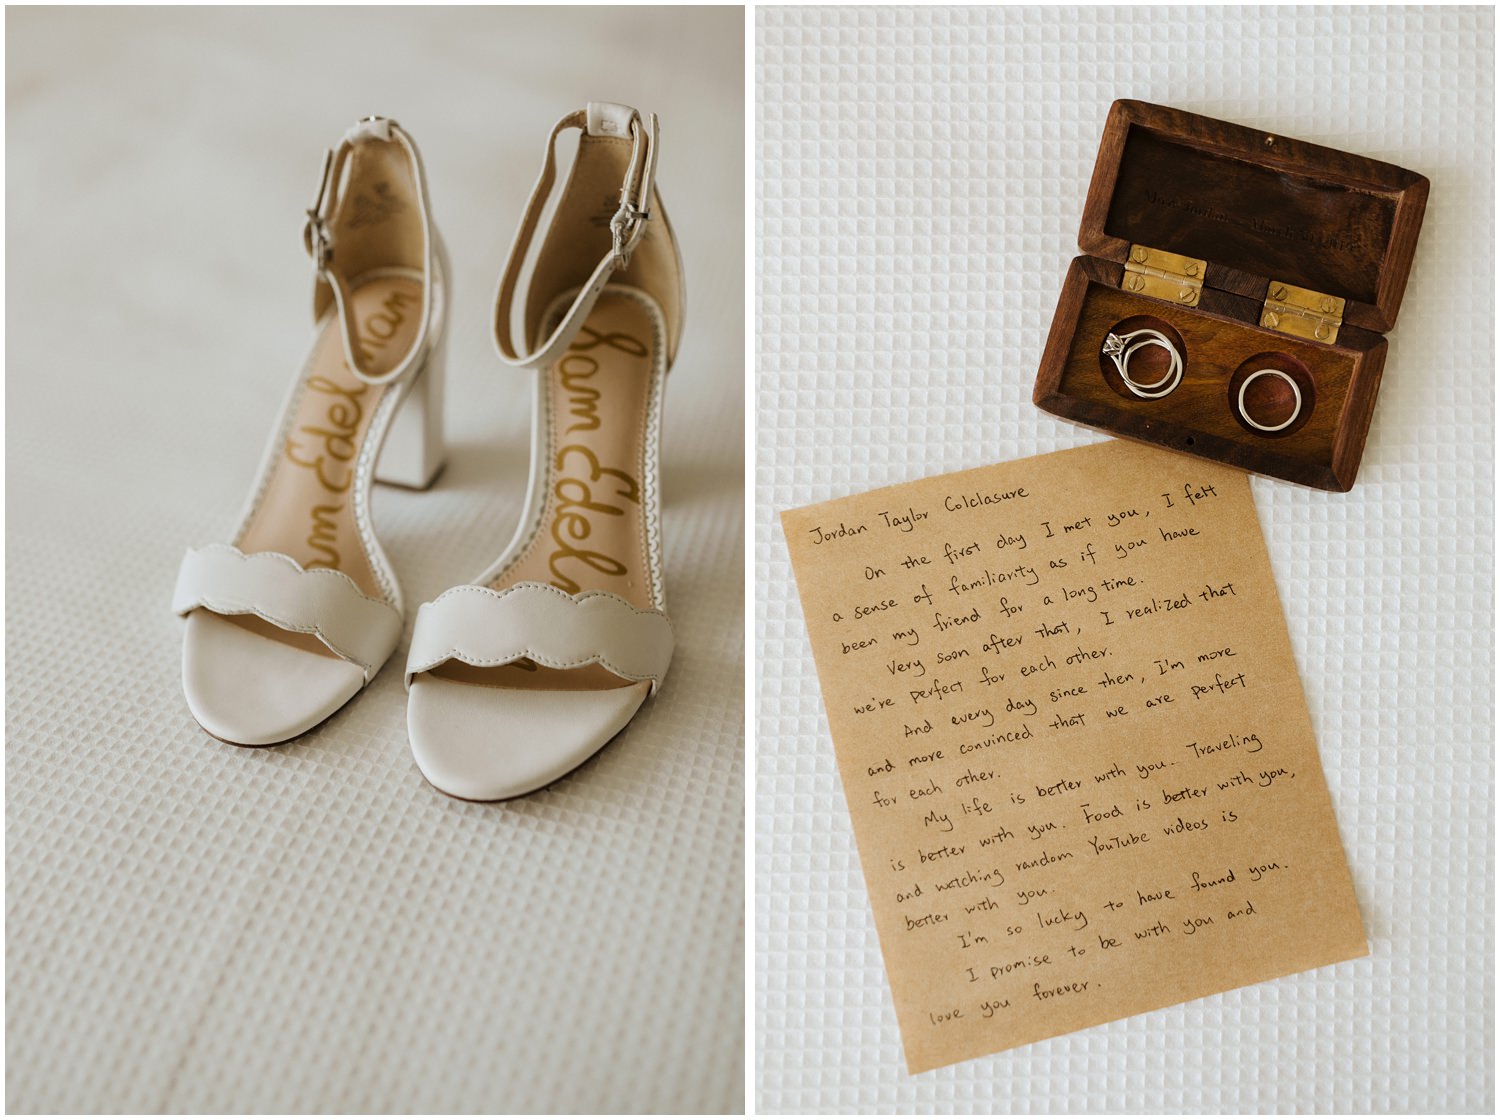 Sam Edelman
Sam Edel
Jordan Taylor Colclasure
On the first day I met you, I felt
a sense of familiarity as if you have
been my friend for a long time.
Very soon after that, I realized that
we're perfect for each other.
And every day since then, I'm more
and more convinced that we are perfect
for each other.
My life is better with you. Traveling
is better with you. Food is better with you,
and watching random YouTube videos is
better with you.
I'm so lucky to have found you.
I promise to be with you and
love you forever.